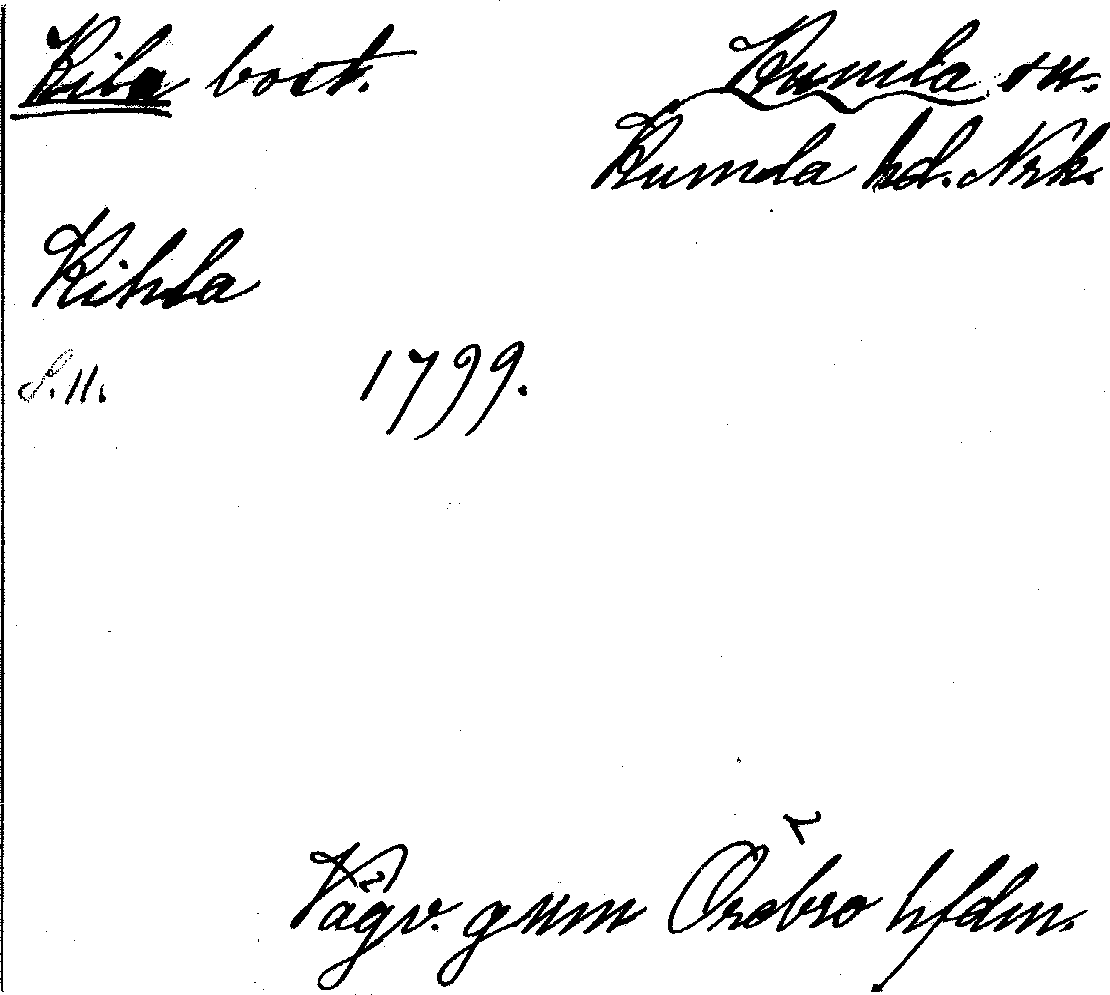 Kila bost. Kumla sn.
Kumla hd. Nrk.
Kihla
S. 11. 1799.
Vägv. gnm Örebro hfdm.